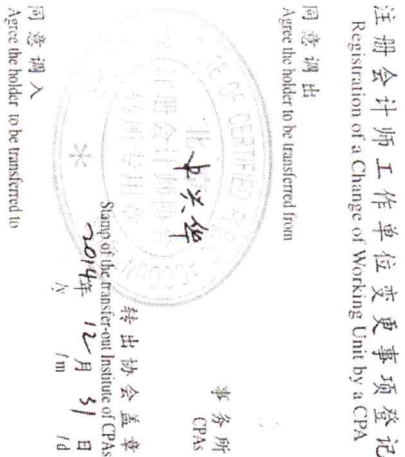 注册会计师工作单位变更事项登记
Registration of a Change of Working Unit by a CPA
同意调出
Agree the holder to be transferred from
中兴华
事务所
CPAs
转出协会盖章
Stamp of the transfer-out Institute of CPAs
2014年 12月 31日
/y /m /d
同意调入
Agree the holder to be transferred to